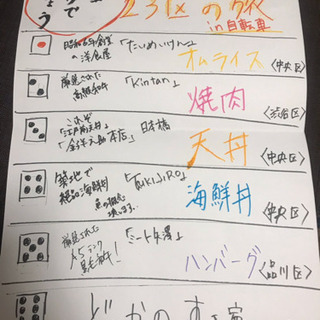 で
よう
23区の旅
in自転車
昭和6年創業
の洋食屋
「たいめいけん」
オムライス
〈中央区〉
厳選された
高級和牛
「Kintan」
焼肉
〈渋谷区〉
これぞ
「江戸前天丼」
「金子半之助 本店」日本橋
天丼
〈中央区〉
築地で
絶品海鮮丼
海鮮丼
〈中央区〉
厳選された
A5ランク
黒毛和牛!
「ミート矢澤」
ハンバーグ
〈品川区〉
どこかのすき家